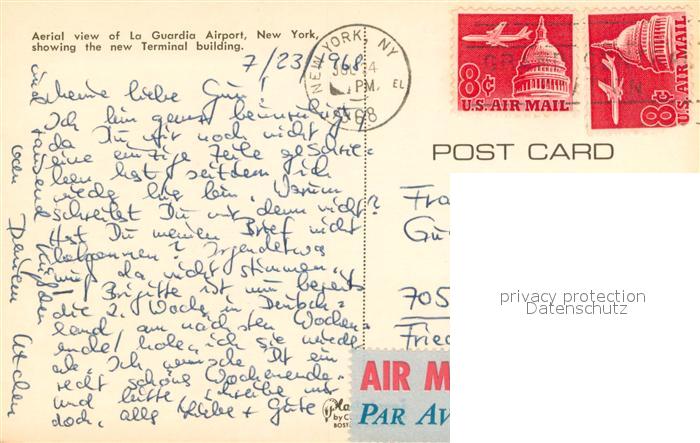 Aerial view of La Guardia Airport, New York,
showing the new Terminal building.
7/23/1968
meine liebe
Ich bin ganz beunruhigt,
da Du mir noch nicht
eine einzige Zeile geschrie-
ben hast seitdem ich
wieder hier bin. Warum
schreibst Du mir denn nicht?
Hast Du meinen Brief nicht
bekommen? Irgendetwas
muß da nicht stimmen.
Brigitte ist nun bereits
die 2. Woche in Deutsch-
land, am nächsten Wochen-
ende hole ich sie wieder
ab. Ich wünsche Dir ein
recht schönes Wochenende
und bitte schreibe mir
doch, alles Liebe + Gute
und
tausend
Küßchen
von Deinem
NEW YORK, NY
PM
1968
8¢
U.S. AIR MAIL
8¢
U.S. AIR MAIL
POST CARD
Fra
Gü
705
Fried
privacy protection
Datenschutz
AIR M
PAR AV
by C
BOST